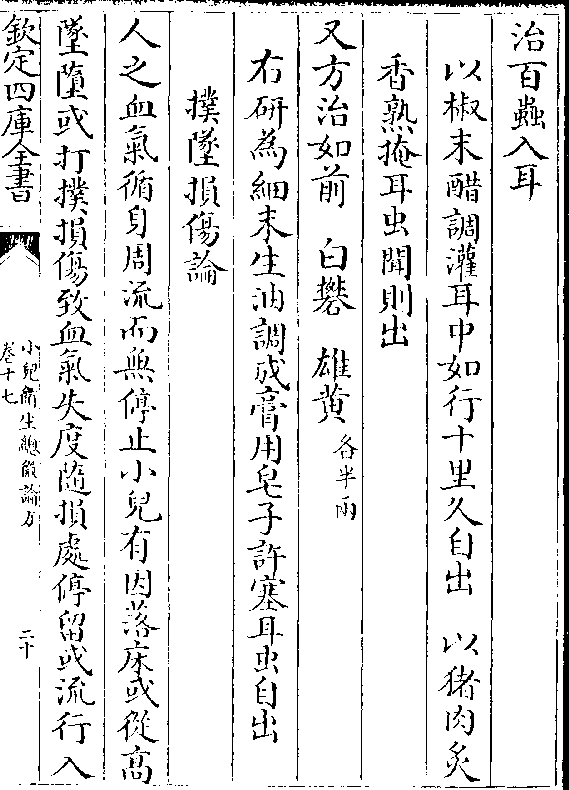 治百蟲入耳
以椒末醋調灌耳中如行十里久自出　以猪肉炙
香熟掩耳虫聞則出
又方治如前　白礬　雄黄各半兩
右研為細末生油調成膏用皂子許塞耳虫自出
撲墜損傷論
人之血氣循身周流而無停止小兒有因落床或從高
墜墮或打撲損傷致血氣失度隨損處停留或流行入
欽定四庫全書
小兒衛生總微論方
卷十七
二十